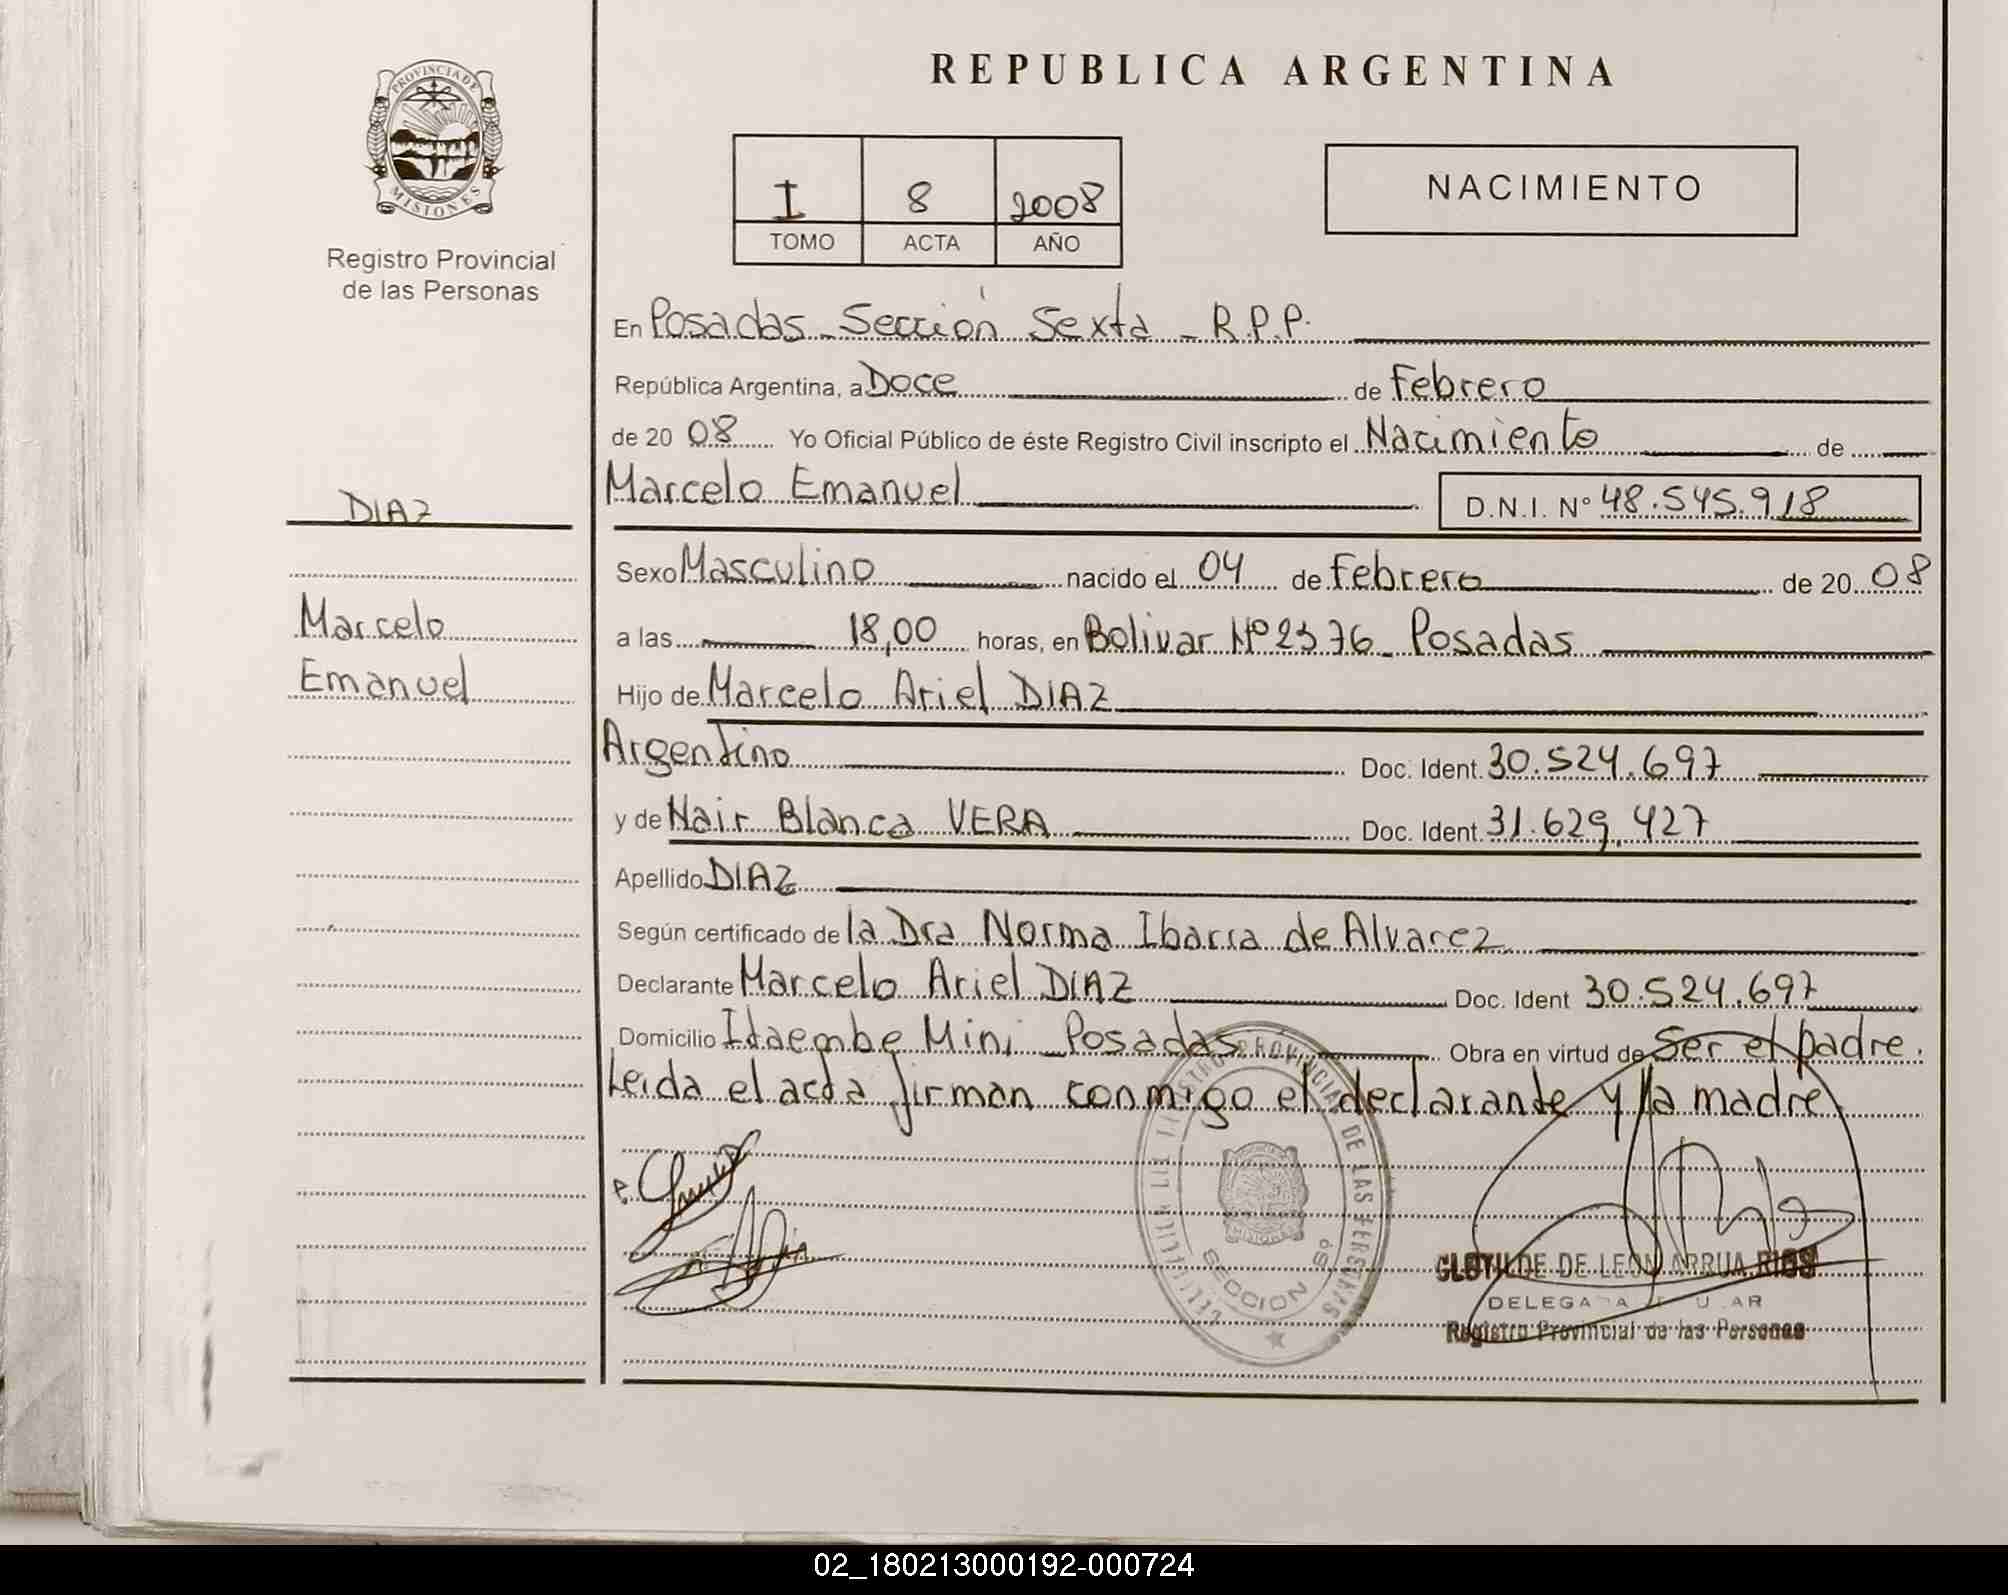 PROVINCIA DE
MISIONES
Registro Provincial
de las Personas
REPUBLICA ARGENTINA
I 8 2008
TOMO ACTA AÑO
NACIMIENTO
En Posadas - Sección Sexta - R.P.P.
República Argentina, a Doce de Febrero
de 20 08 Yo Oficial Público de éste Registro Civil inscripto el Nacimiento de
DIAZ
Marcelo Emanuel D.N.I. Nº 48.545.918
Sexo Masculino nacido el 04 de Febrero de 20 08
Marcelo
a las 18,00 horas, en Bolivar Nº 2376 - Posadas
Emanuel
Hijo de Marcelo Ariel DIAZ
Argentino Doc. Ident. 30.524.697
y de Nair Blanca VERA Doc. Ident. 31.629.427
Apellido DIAZ
Según certificado de la Dra Norma Ibarra de Alvarez
Declarante Marcelo Ariel DIAZ Doc. Ident 30.524.697
Domicilio Itaembe Mini - Posadas Obra en virtud de Ser el padre.
Leida el acta firman conmigo el declarante y la madre
REGISTRO PROVINCIAL DE LAS PERSONAS
SECCION 6º
CLOTILDE DE LEON ARRUA RIOS
DELEGADA
Registro Provincial de las Personas
02_180213000192-000724